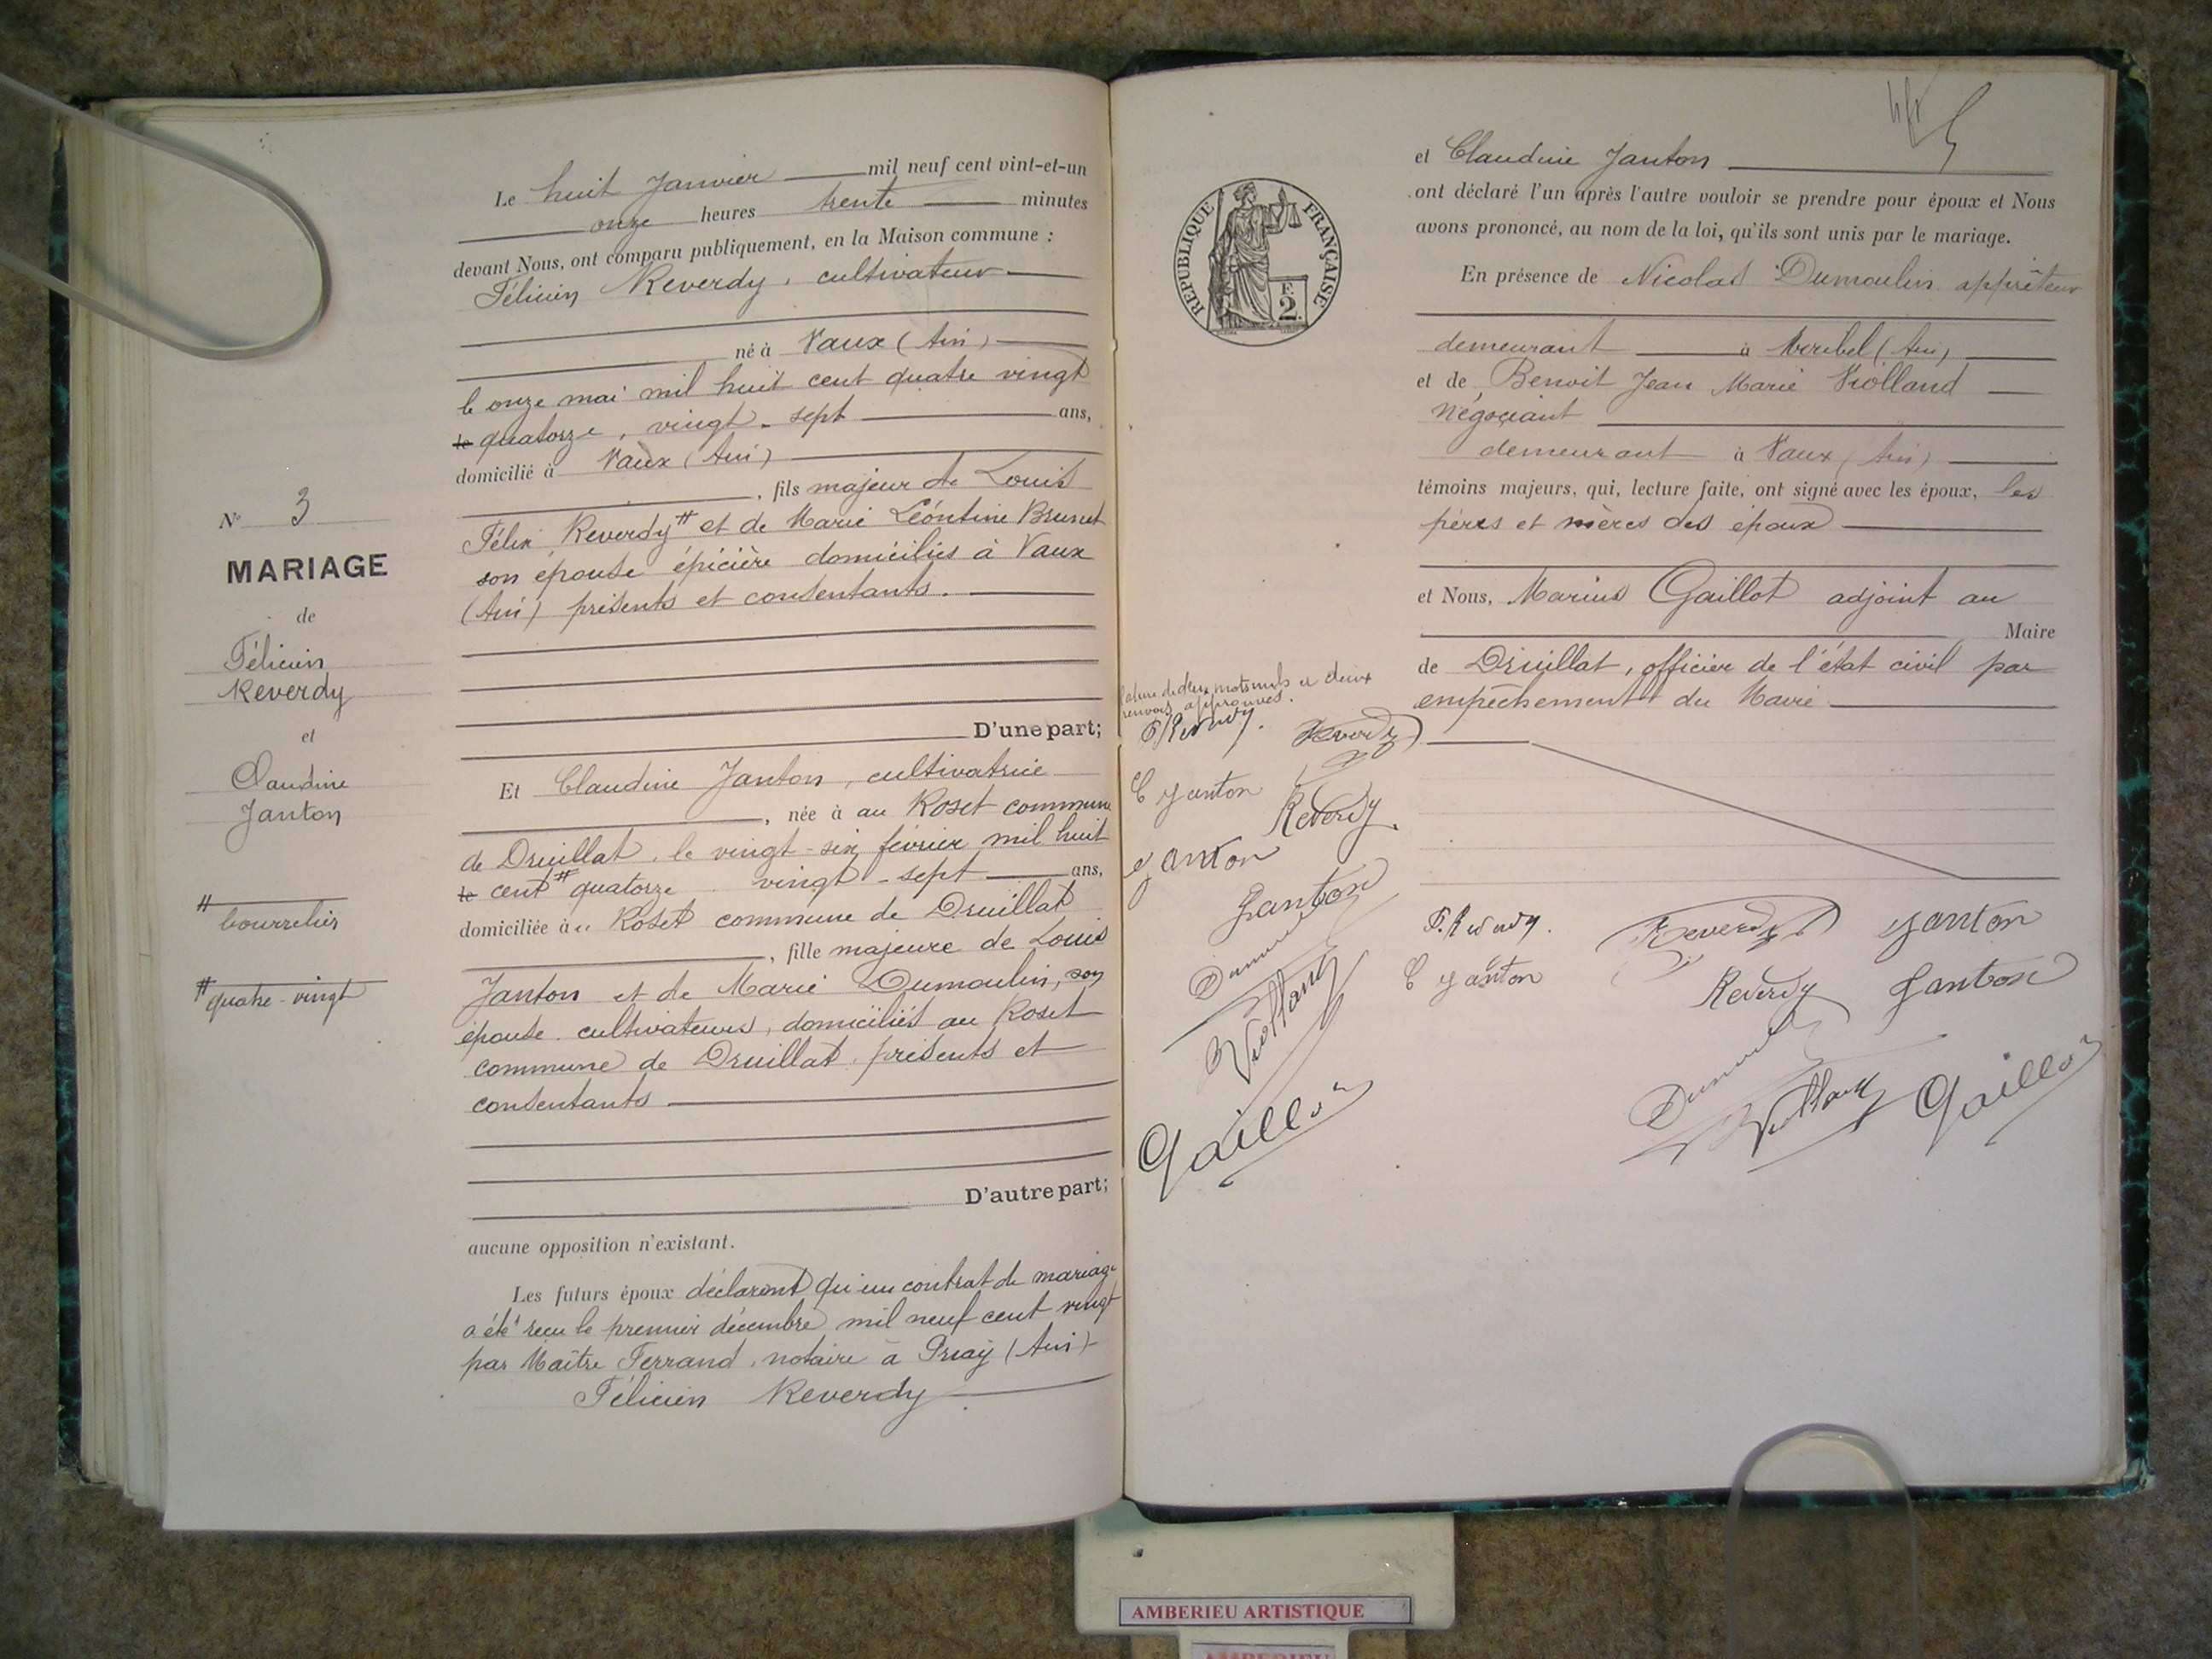 Le huit Janvier mil neuf cent vint-et-un
onze heures trente minutes
devant Nous, ont comparu publiquement, en la Maison commune :
Félicien Reverdy, cultivateur
né à Vaux (Ain)
le onze mai mil huit cent quatre vingt
le quatorze, vingt-sept ans,
domicilié à Vaux (Ain)
, fils majeur de Louis
Félix Reverdy # et de Marie Léontine Brunet
son épouse épicière domiciliés à Vaux
(Ain) présents et consentants.
D'une part;
Et Claudine Janton, cultivatrice
, née à au Roset commune
de Druillat, le vingt-six février mil huit
le cent # quatorze vingt-sept ans,
domiciliée à Roset commune de Druillat
, fille majeure de Louis
Janton et de Marie Dumoulin, son
épouse cultivateurs, domiciliés au Roset
commune de Druillat, présents et
consentants
D'autre part;
aucune opposition n'existant.
Les futurs époux déclarent qu'un contrat de mariage
a été reçu le premier décembre mil neuf cent vingt
par Maître Ferrand, notaire à Priay (Ain)
Félicien Reverdy
N° 3
MARIAGE
de
Félicien
Reverdy
et
Claudine
Janton
# bourrelier
# quatre-vingt
et Claudine Janton
ont déclaré l'un après l'autre vouloir se prendre pour époux et Nous
avons prononcé, au nom de la loi, qu'ils sont unis par le mariage.
En présence de Nicolas Dumoulin apprêteur
demeurant à Meribel (Ain)
et de Benoit Jean Marie Violland
négociant
demeurant à Vaux (Ain)
témoins majeurs, qui, lecture faite, ont signé avec les époux, les
pères et mères des époux
et Nous, Marius Gaillot adjoint au
Maire
de Druillat, officier de l'état civil par
empêchement du Maire
RÉPUBLIQUE FRANÇAISE
F.
2.
de deux mots nuls et deux
renvois approuvés.
F. Reverdy. Reverdy
C Janton
Reverdy
Janton
Janton
Dumoulin
Violland
Gaillot
F. Reverdy. Reverdy Janton
C Janton Reverdy Janton
Dumoulin Violland Gaillot
AMBERIEU ARTISTIQUE
AMBERIEU